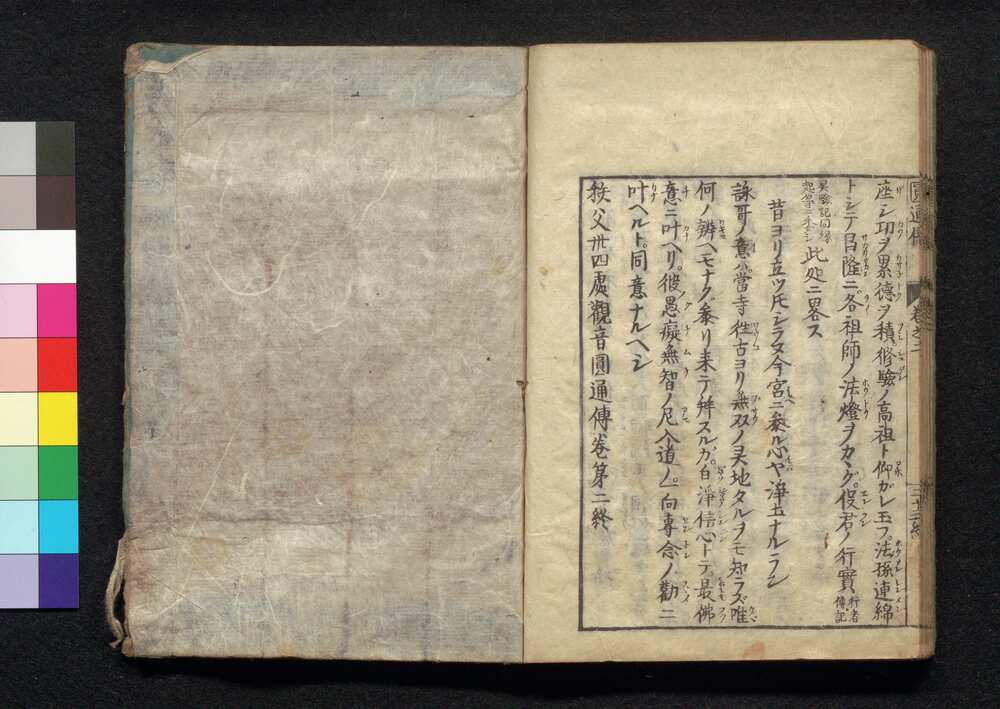 圓通傳 卷之二 二十三終
座シ功ヲ累徳ヲ積修驗ノ高祖ト仰ガレ玉フ。法孫連綿
トシテ昌隆ニ。各祖師ノ法燈ヲカヽグ。役君ノ行實 行者傳記
此処ニ畧ス
昔ヨリ立ツトモシラヌ今宮ニ参ル心ヤ浄土ナルラン
詠哥ノ意ハ。當寺往古ヨリ無双ノ灵地タルヲモ知ラズ唯
何ノ辨ヘモナク參リ来テ拜スルガ。自浄信心トテ。最佛
意ニ叶ヘリ。彼愚癡無智ノ尼入道ノ。一向專念ノ勸ニ
叶ヘルト。同意ナルヘシ
秩父卅四處觀音圓通傳卷第二終